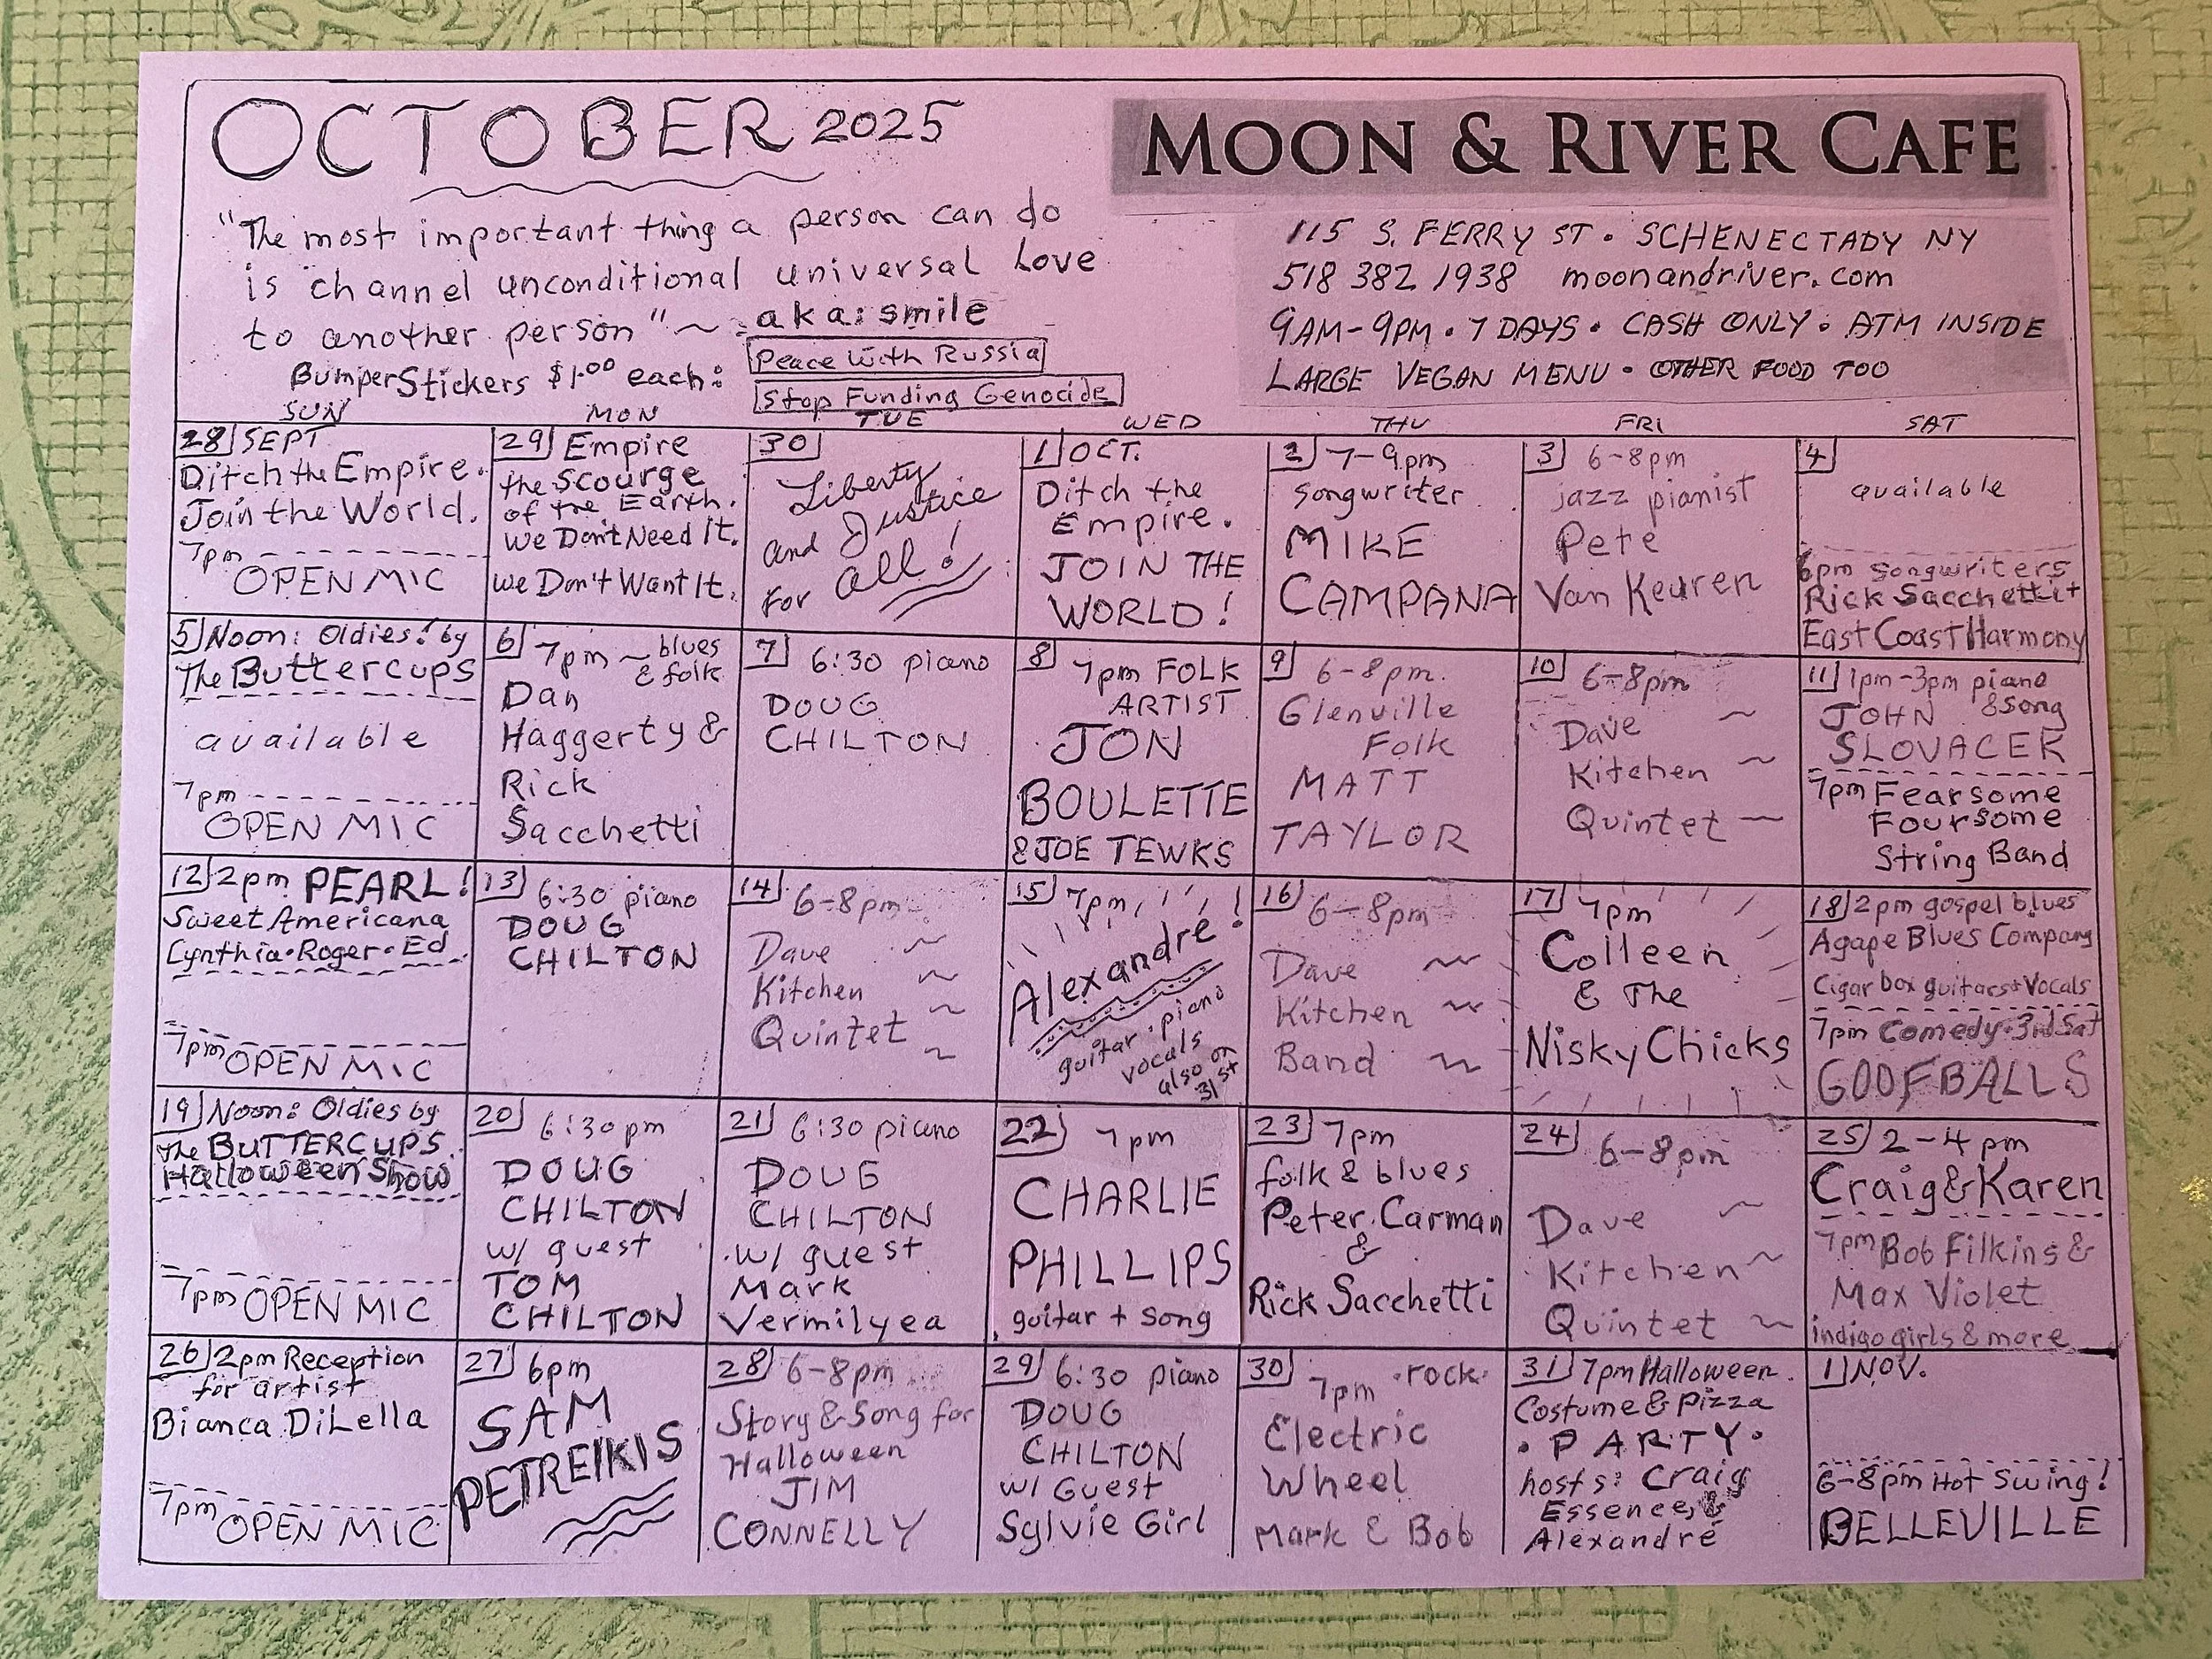 OCTOBER 2025
MOON & RIVER CAFE
"The most important thing a person can do
is channel unconditional universal Love
to another person" ~ aka: smile
BumperStickers $1.00 each:
Peace With Russia
Stop Funding Genocide
115 S. FERRY ST • SCHENECTADY NY
518 382 1938 moonandriver.com
9AM-9PM • 7 DAYS • CASH ONLY • ATM INSIDE
LARGE VEGAN MENU • OTHER FOOD TOO
SUN MON TUE WED THU FRI SAT
28 SEPT
Ditch the Empire.
Join the World.
7pm
OPEN MIC
29 Empire
the Scourge
of the Earth.
We Don't Need It.
We Don't Want It.
30
Liberty
and Justice
for all!
1 OCT.
Ditch the
Empire.
JOIN THE
WORLD!
2 7-9pm
songwriter
MIKE
CAMPANA
3 6-8pm
jazz pianist
Pete
Van Keuren
4
available
6pm songwriters
Rick Sacchetti +
East Coast Harmony
5 Noon: Oldies! by
The Buttercups
available
7pm
OPEN MIC
6 7pm ~ blues
& folk
Dan
Haggerty &
Rick
Sacchetti
7 6:30 piano
DOUG
CHILTON
8 7pm FOLK
ARTIST
JON
BOULETTE
& JOE TEWKS
9 6-8pm.
Glenville
Folk
MATT
TAYLOR
10 6-8pm
Dave ~
Kitchen ~
Quintet ~
11 1pm-3pm piano
& Song
JOHN
SLOVACEK
7pm Fearsome
Foursome
String Band
12 2pm PEARL!
Sweet Americana
Cynthia • Roger • Ed
7pm OPEN MIC
13 6:30 piano
DOUG
CHILTON
14 6-8pm
Dave ~
Kitchen ~
Quintet ~
~
15 7pm
Alexandré!
guitar • piano
vocals
also on
31st
16 6-8pm
Dave ~
Kitchen ~
Band ~
17 7pm
Colleen
& The
Nisky Chicks
18 2pm gospel blues
Agape Blues Company
Cigar box guitars + Vocals
7pm Comedy • 3rd Sat
GOOFBALLS
19 Noon: Oldies by
The BUTTERCUPS
Halloween Show
7pm OPEN MIC
20 6:30pm
DOUG
CHILTON
w/ guest
TOM
CHILTON
21 6:30 piano
DOUG
CHILTON
w/ guest
Mark
Vermilyea
22 7pm
CHARLIE
PHILLIPS
guitar + song
23 7pm
folk & blues
Peter Carman
&
Rick Sacchetti
24 6-8pm
Dave ~
Kitchen ~
Quintet ~
25 2-4 pm
Craig & Karen
7pm Bob Filkins &
Max Violet
indigo girls & more
26 2pm Reception
for artist
Bianca DiLella
7pm OPEN MIC
27 6pm
SAM
PETREIKIS
28 6-8pm
Story & Song for
Halloween
JIM
CONNELLY
29 6:30 piano
DOUG
CHILTON
w/ Guest
Sylvie Girl
30 7pm • rock •
Electric
Wheel
Mark & Bob
31 7pm Halloween
Costume & pizza
• PARTY •
hosts: Craig
Essence, &
Alexandré
1 NOV.
6-8pm Hot Swing!
BELLEVILLE